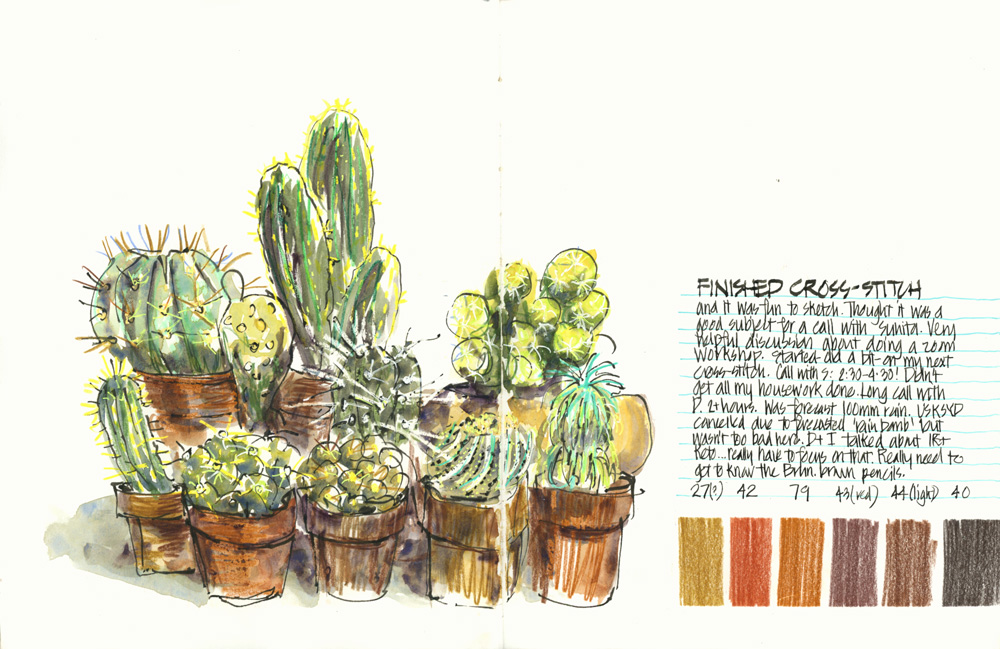 FINISHED CROSS-STITCH
and it was fun to sketch. Thought it was a
good subject for a call with Sunita. Very
helpful discussion about doing a zoom
workshop. Started did a bit on my next
cross-stitch. Call with S: 2:30-4:30! Didn't
get all my housework done. Long call with
D. 2+ hours. Was forecast 100mm rain. USKSYD
cancelled due to forecasted 'rain bomb' but
wasn't too bad here. D + I talked about IR+
Keto...really have to focus on that. Really need to
get to know the brown pencils.
27(?) 42 79 43(red) 44(light) 40